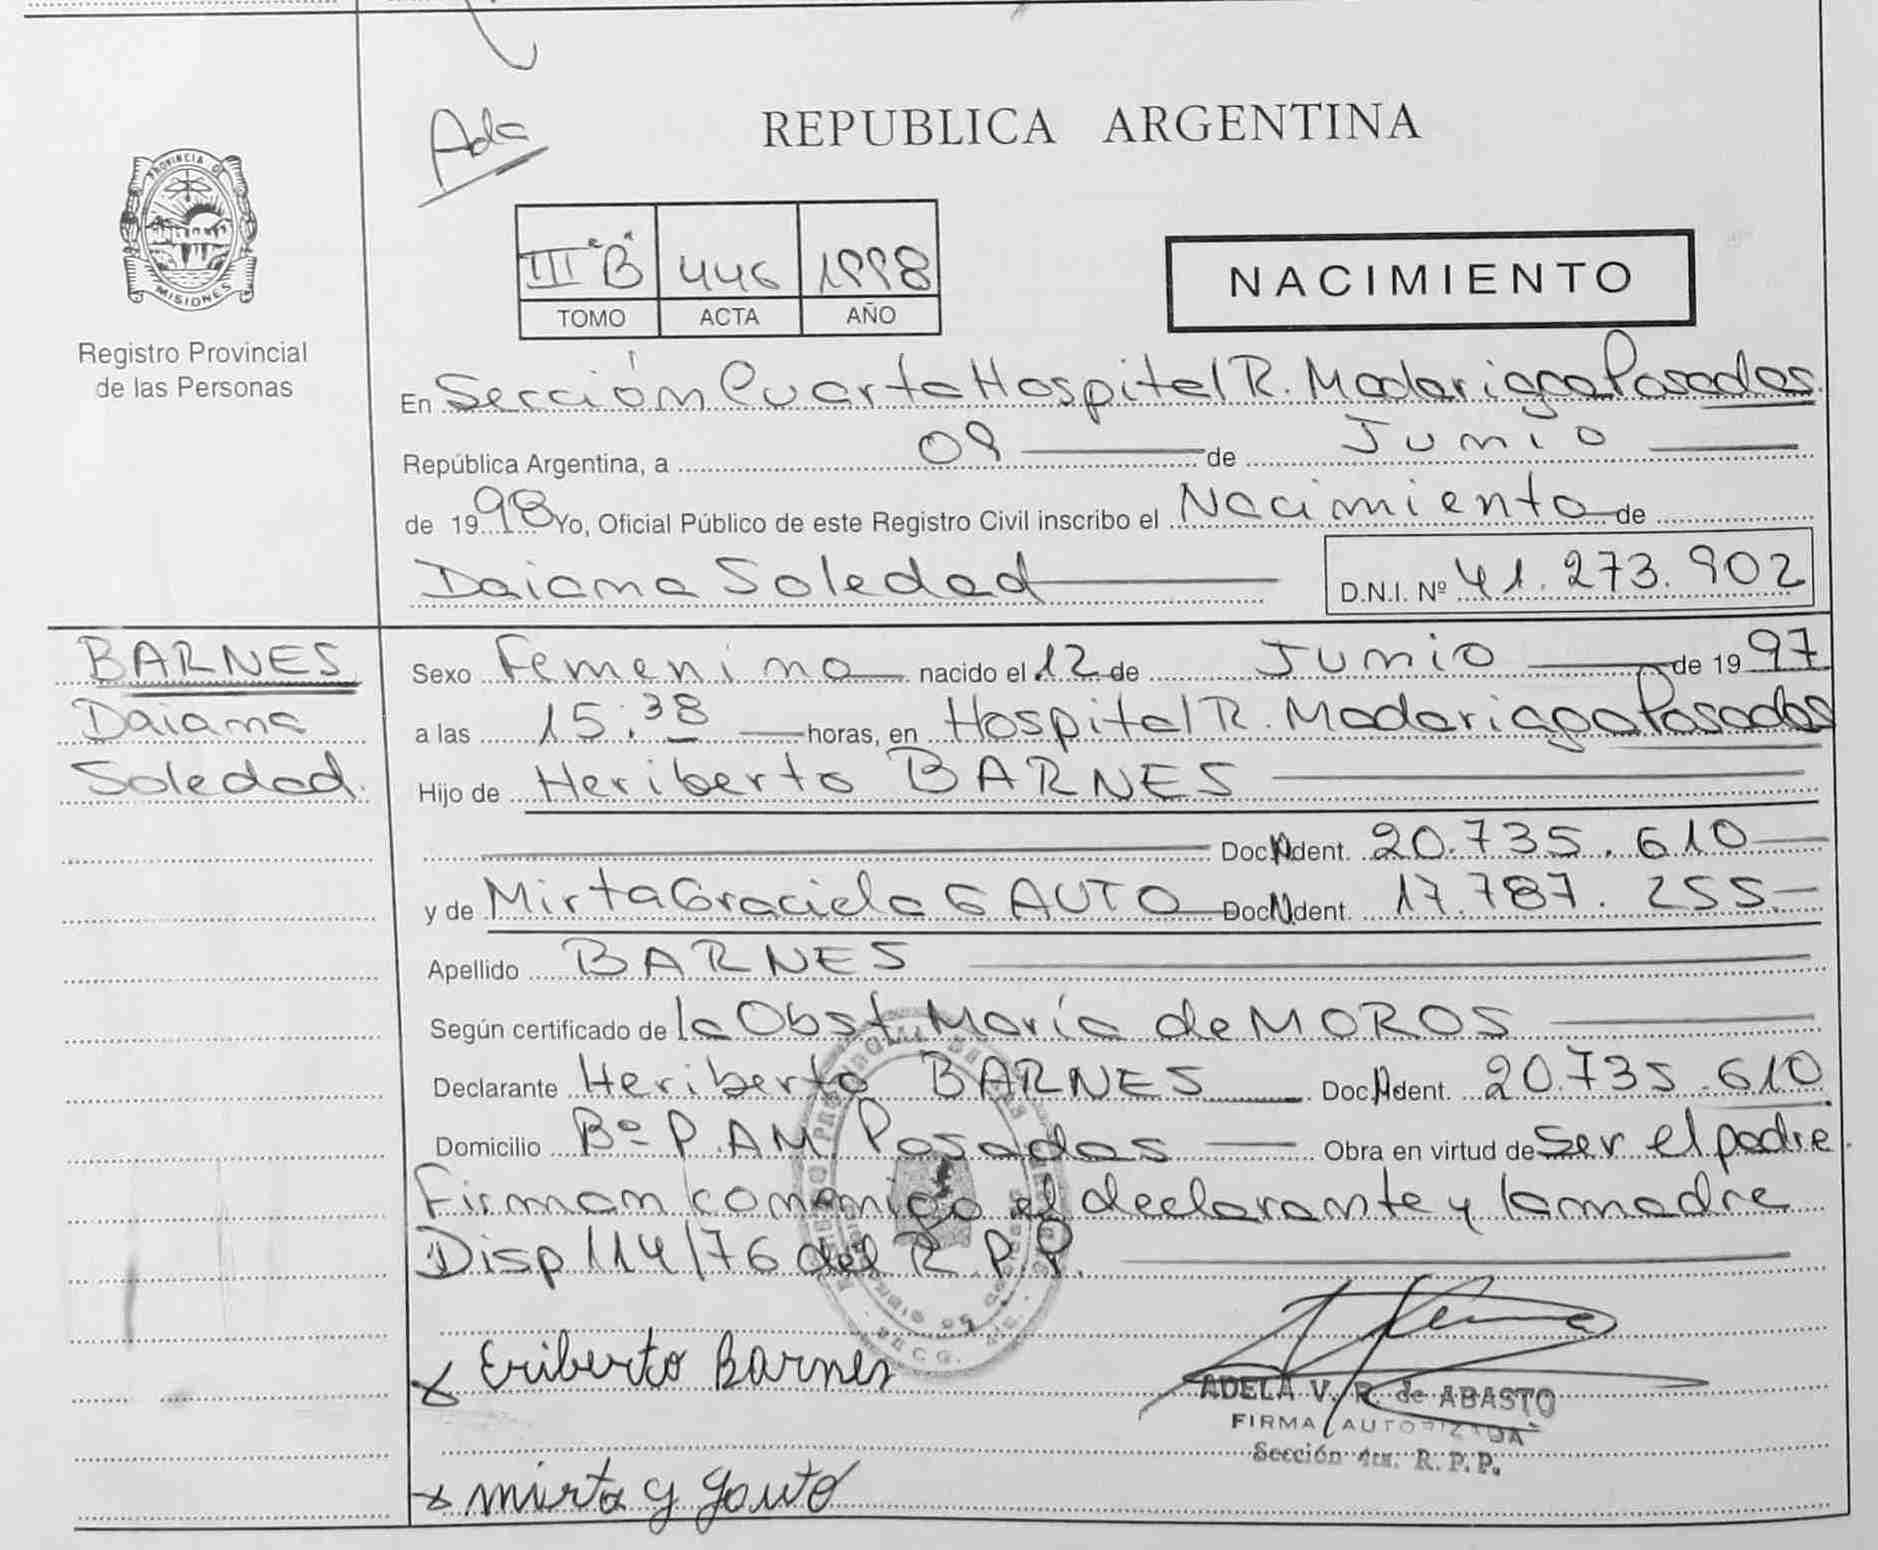 REPUBLICA ARGENTINA
Ada
PROVINCIA D
MISIONES
Registro Provincial
de las Personas
III "B" 446 1998
TOMO ACTA AÑO
NACIMIENTO
En Sección Cuarta Hospital R. Madariaga Posadas.
República Argentina, a 09 de Junio
de 1998 Yo, Oficial Público de este Registro Civil inscribo el Nacimiento de
Daiana Soledad D.N.I. Nº 41.273.902
BARNES
Daiana
Soledad.
Sexo Femenino nacido el 12 de Junio de 1997
a las 15:38 horas, en Hospital R. Madariaga Posadas
Hijo de Heriberto BARNES
Doc. Ident. 20.735.610
y de Mirta Graciela GAUTO Doc. Ident. 17.787.255
Apellido BARNES
Según certificado de la Obst María de MOROS
Declarante Heriberto BARNES Doc. Ident. 20.735.610
Domicilio Bº P.AM Posadas Obra en virtud de ser el padre.
Firman conmigo el declarante y la madre
Disp 114/76 del R.P.P.
x Eriberto Barnes
ADELA V. R. de ABASTO
FIRMA AUTORIZADA
Sección 4ta. R. P. P.
x mirta g gauto